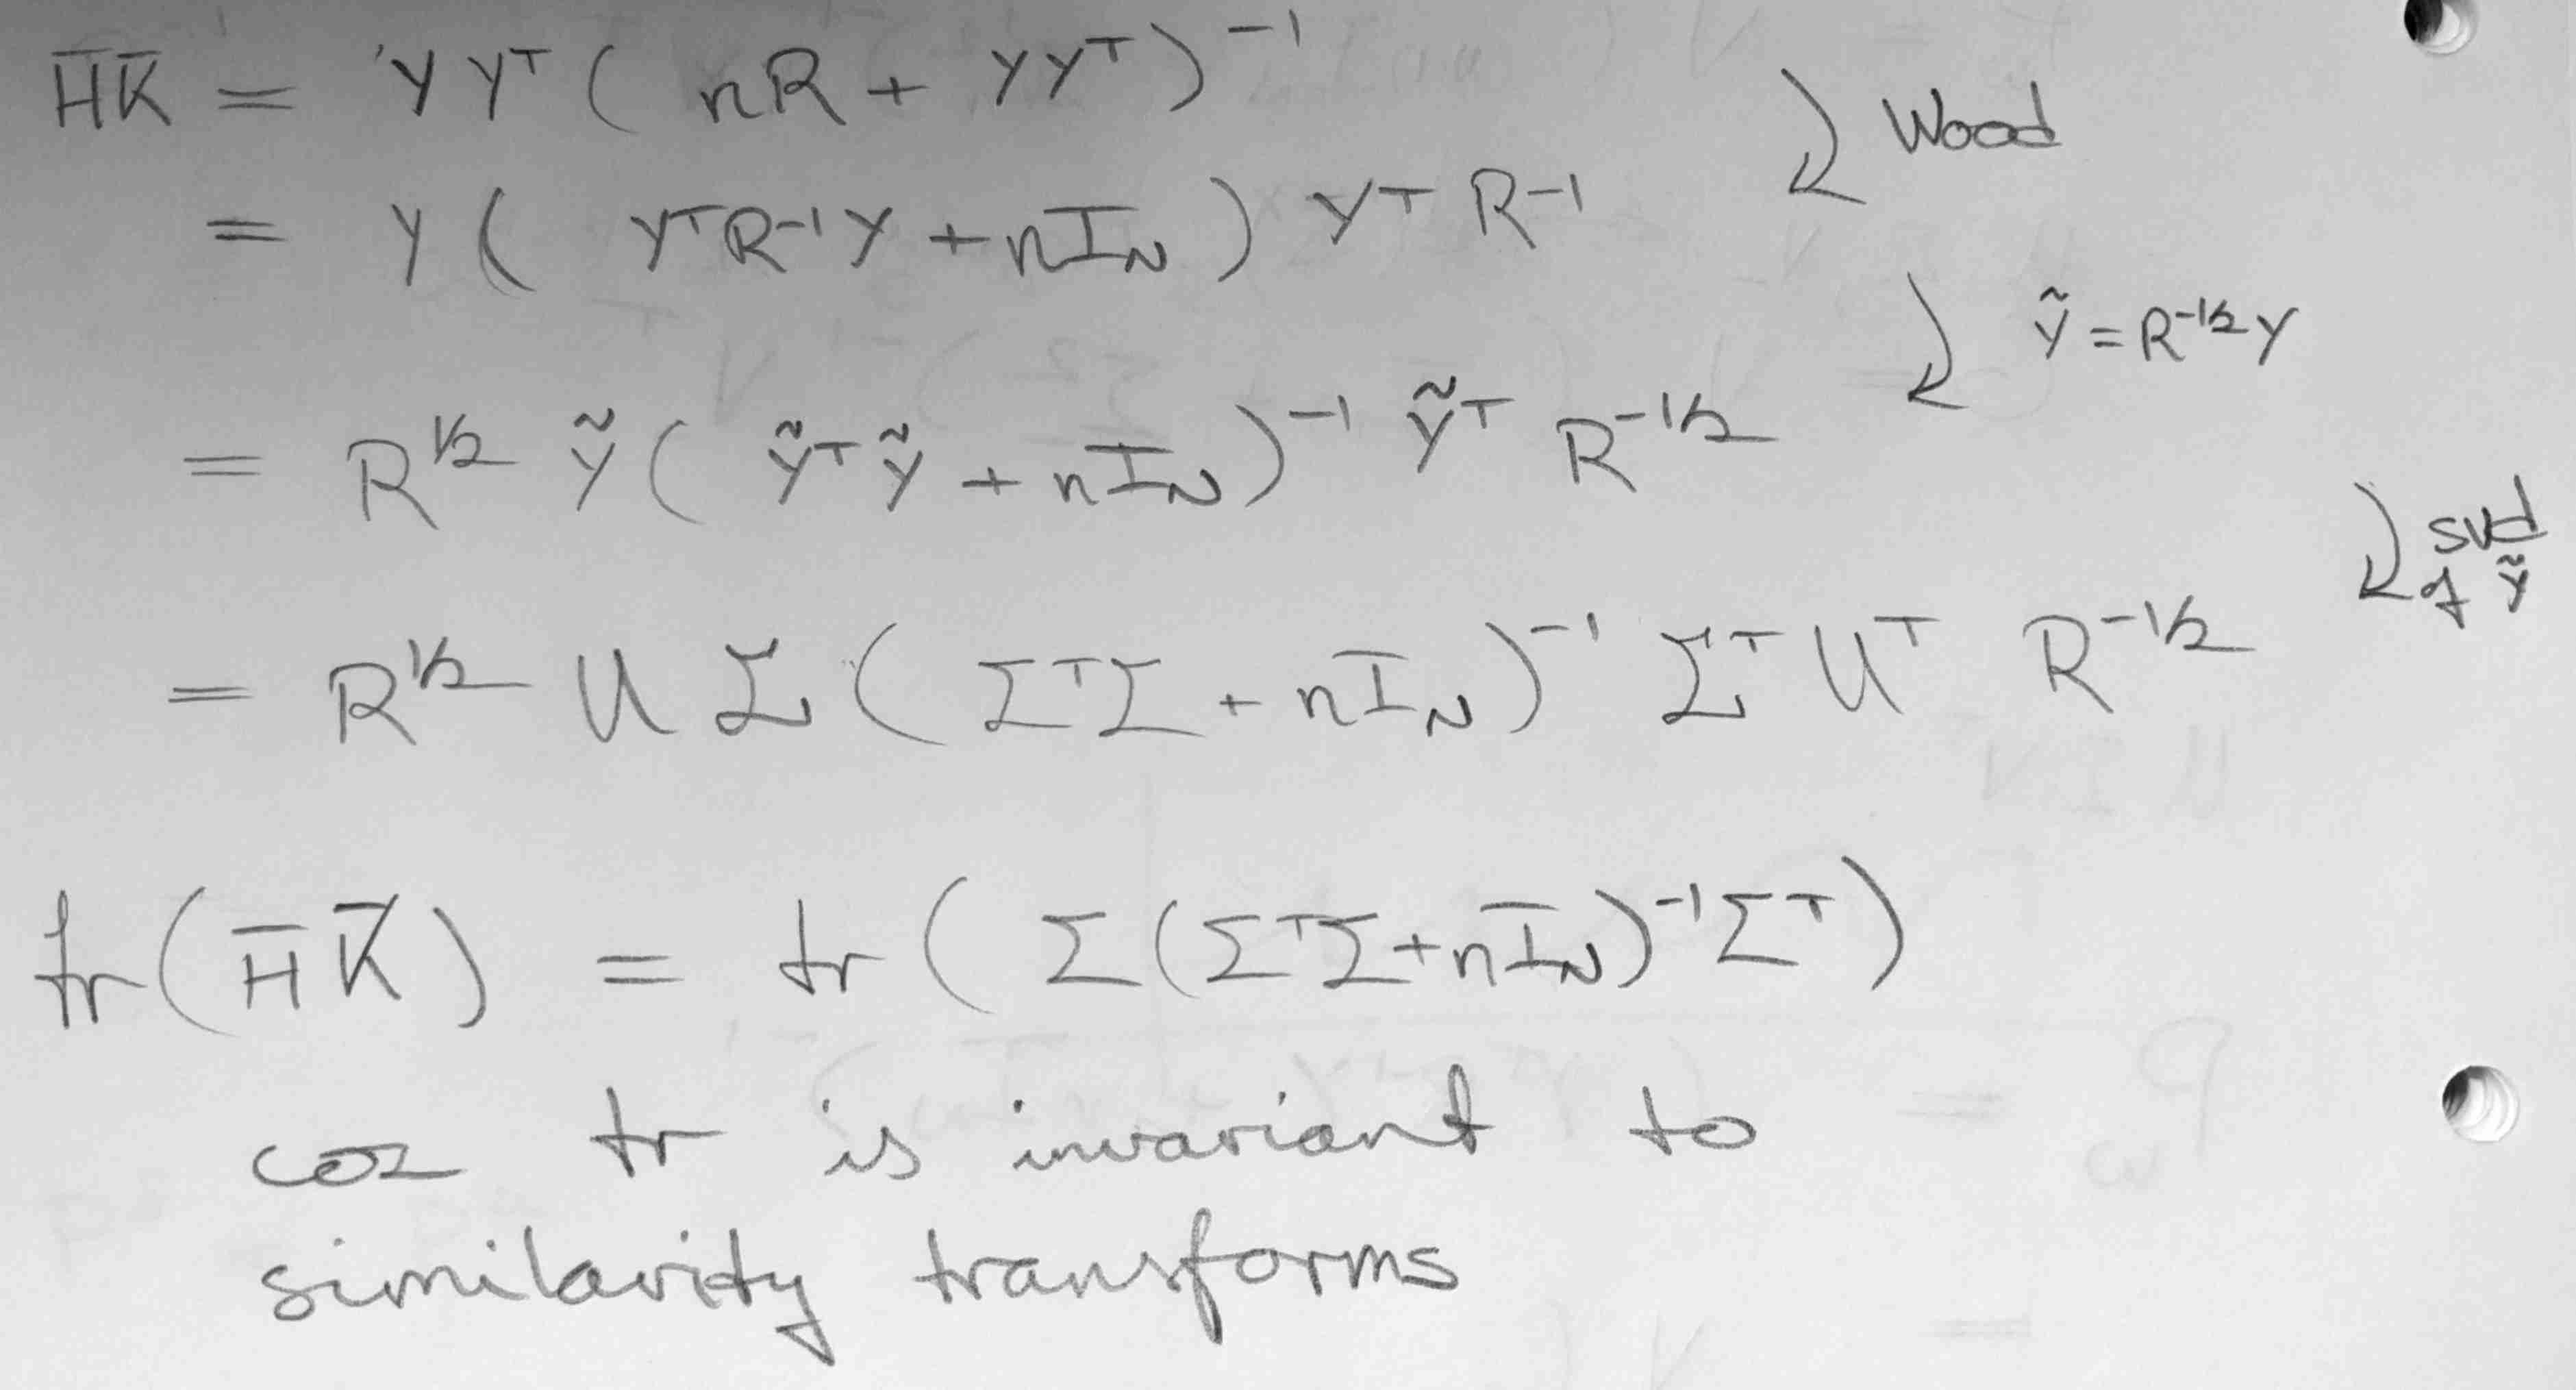 H̅K̅ = YYᵀ( nR + YYᵀ)⁻¹
Wood
= Y( YᵀR⁻¹Y + nI_N ) Yᵀ R⁻¹
Ỹ = R^{-1/2} Y
= R^{1/2} Ỹ( ỸᵀỸ + nI_N )⁻¹ Ỹᵀ R^{-1/2}
svd
of Ỹ
= R^{1/2} U Σ ( ΣᵀΣ + nI_N )⁻¹ Σᵀ Uᵀ R^{-1/2}
tr(H̅K̅) = tr( Σ(ΣᵀΣ+nI_N)⁻¹Σᵀ)
coz tr is invariant to
similarity transforms